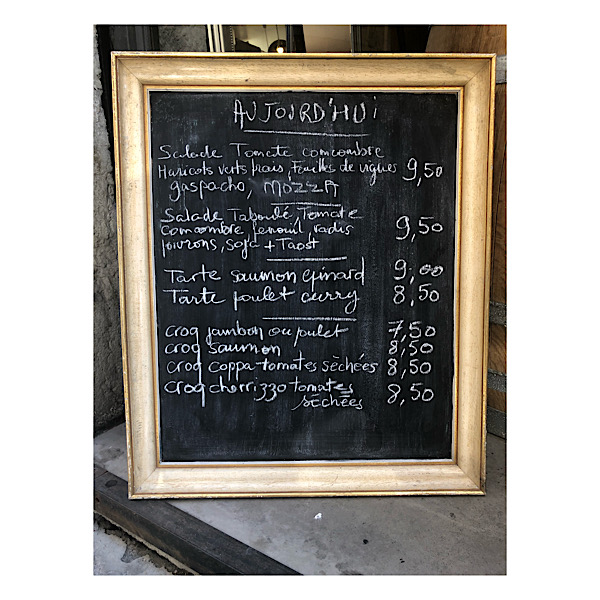 AUJOURD'HUI
Salade Tomate comcombre
Haricots verts frais, Feuilles de vignes 9,50
gaspacho, MOZZA
Salade Taboulé, Tomate
comcombre, fenouil, radis 9,50
poivrons, Soja + Taost
Tarte saumon épinard 9,00
Tarte poulet curry 8,50
Croq jambon ou poulet 7,50
Croq Saumon 8,50
Croq coppa tomates sèchées 8,50
Croq chorrizzo tomates 8,50
sèchées